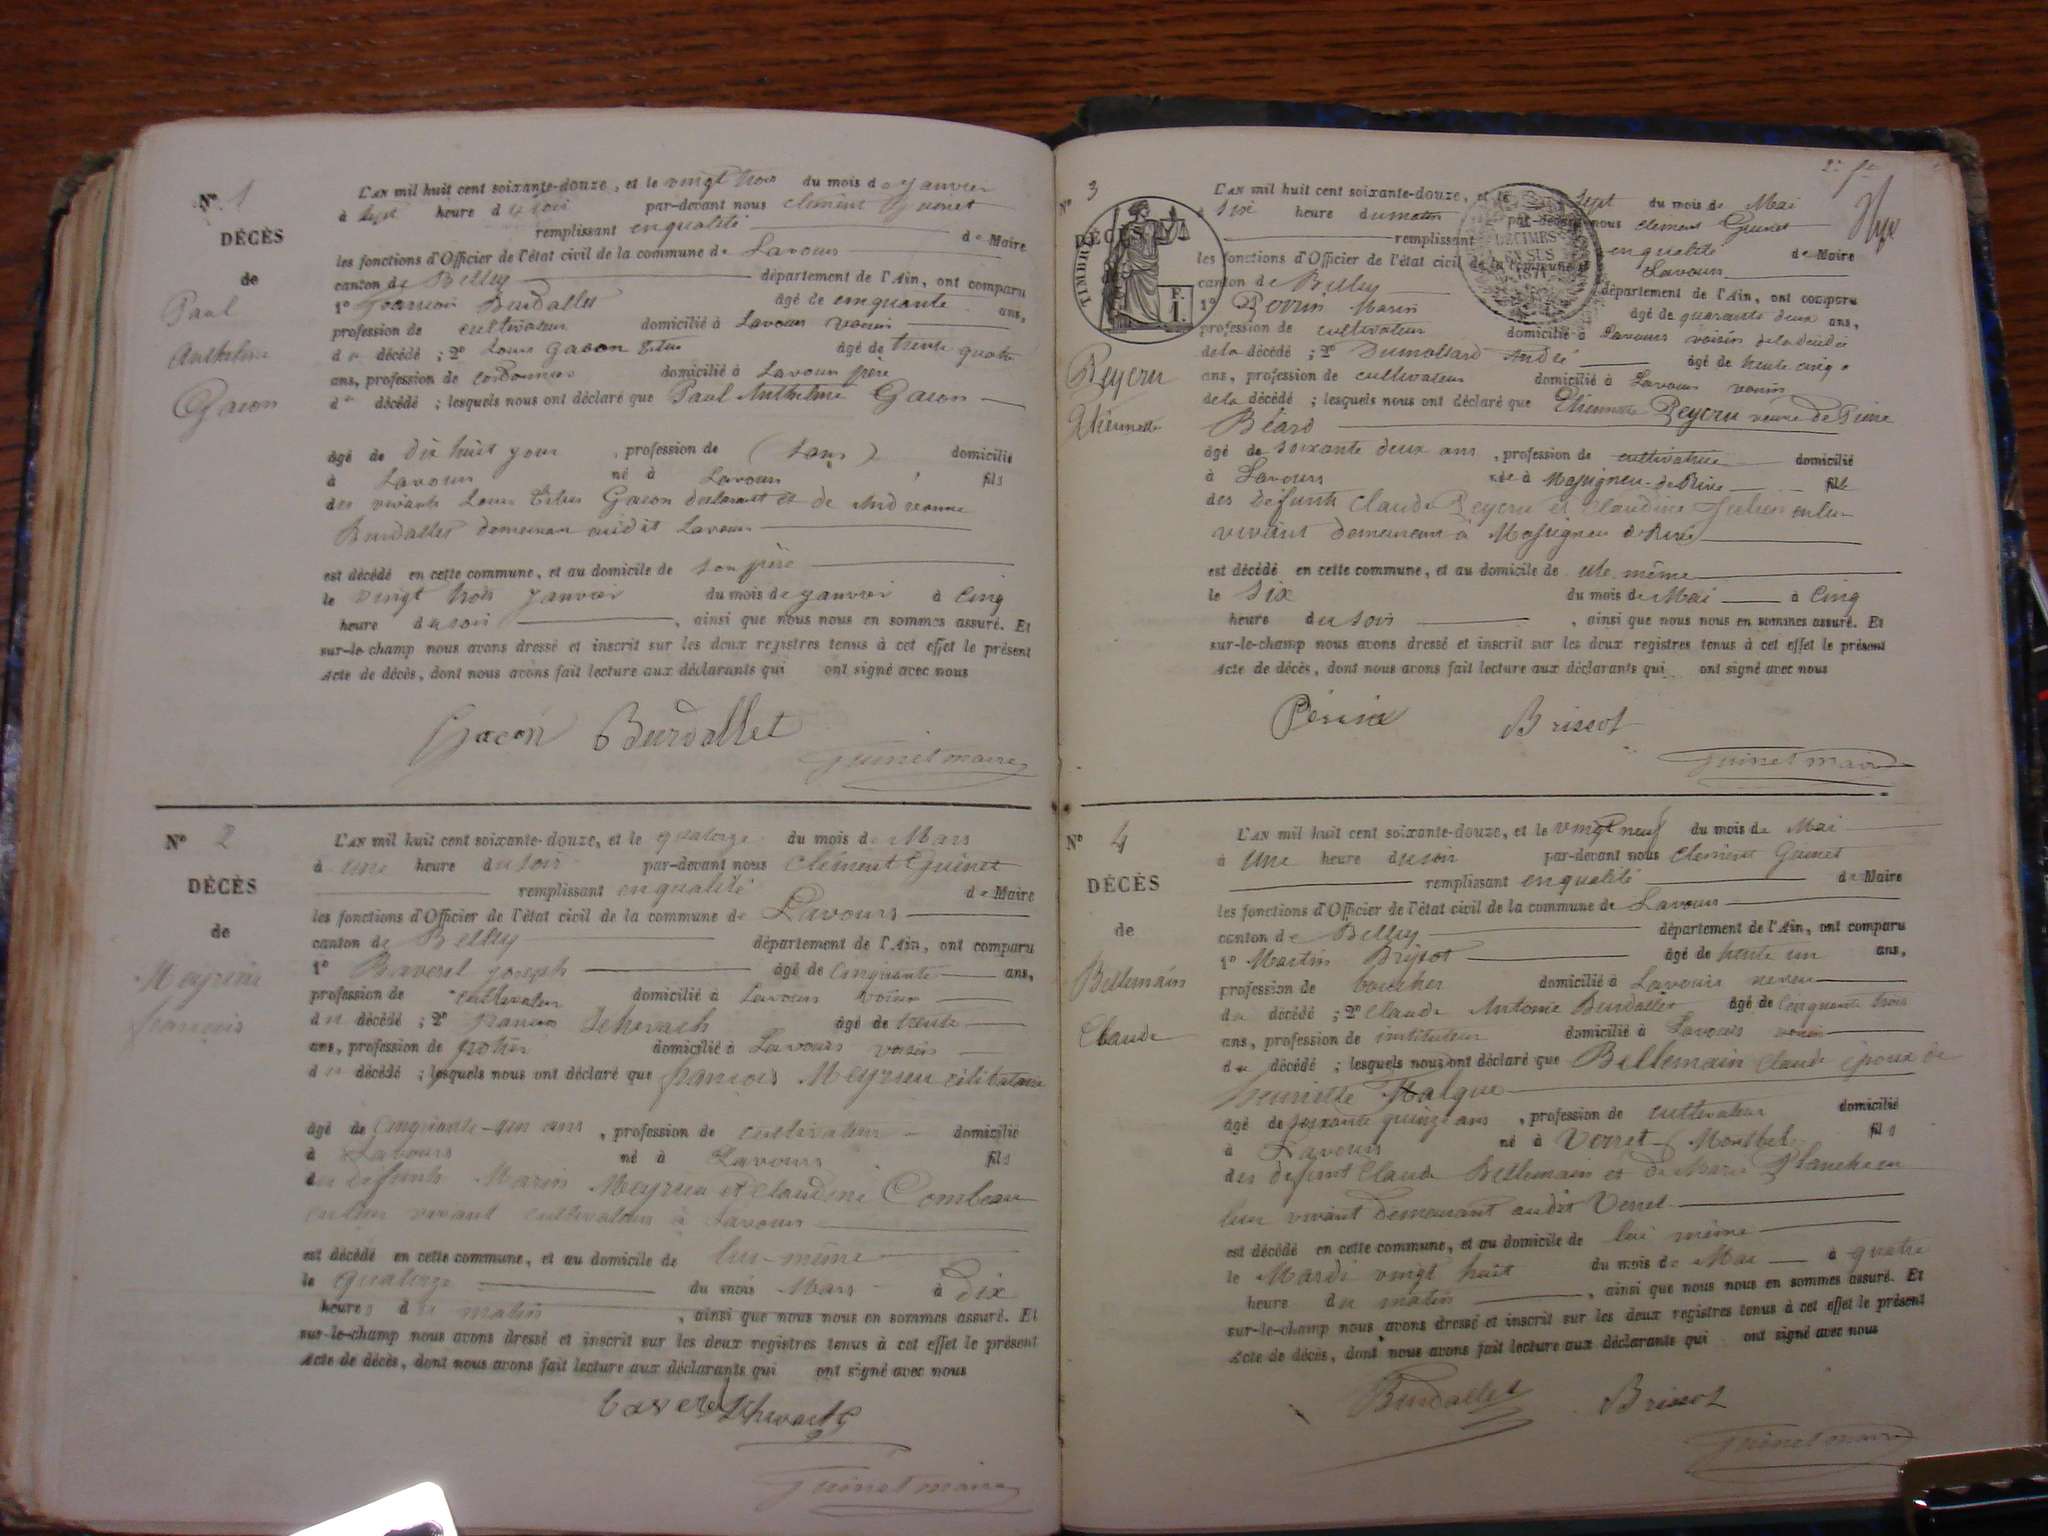 N° 1
DÉCÈS
de
Paul
Anthelme
Gacon
L'AN mil huit cent soixante-douze, et le vingt trois du mois de janvier
à sept heure du soir par-devant nous Clément Guinet
remplissant en qualité de Maire
les fonctions d'Officier de l'état civil de la commune de Lavours
canton de Belley département de l'Ain, ont comparu
1° François Burdallet âgé de cinquante ans,
profession de cultivateur domicilié à Lavours voisin
du décédé ; 2° Louis Gacon Titus âgé de trente quatre
ans, profession de cordonnier domicilié à Lavours père
du décédé ; lesquels nous ont déclaré que Paul Anthelme Gacon
âgé de dix huit jours , profession de (sans) domicilié
à Lavours né à Lavours fils
des vivants Louis Titus Gacon déclarant et de
Burdallet demeuran audit Lavours
est décédé en cette commune, et au domicile de son père
le vingt trois janvier du mois de janvier à cinq
heure du soir , ainsi que nous nous en sommes assuré. Et
sur-le-champ nous avons dressé et inscrit sur les deux registres tenus à cet effet le présent
acte de décès, dont nous avons fait lecture aux déclarants qui ont signé avec nous
Gacon Burdallet
Guinet maire
N° 2
DÉCÈS
de
Meyrieu
françois
L'AN mil huit cent soixante-douze, et le quatorze du mois de Mars
à une heure du soir par-devant nous Clément Guinet
remplissant en qualité de Maire
les fonctions d'Officier de l'état civil de la commune de Lavours
canton de Belley département de l'Ain, ont comparu
1° Ravoul joseph âgé de cinquante ans,
profession de cultivateur domicilié à Lavours voisin
du décédé ; 2° françois âgé de trente
ans, profession de domicilié à Lavours voisin
du décédé ; lesquels nous ont déclaré que françois Meyrieu célibataire
âgé de cinquante-un ans , profession de cultivateur domicilié
à Lavours né à Lavours fils
des défunts Marin Meyrieu et Claudine Combeau
en leur vivant cultivateurs à Lavours
est décédé en cette commune, et au domicile de lui-même
le quatorze du mois Mars à Dix
heures du matin , ainsi que nous nous en sommes assuré. Et
sur-le-champ nous avons dressé et inscrit sur les deux registres tenus à cet effet le présent
acte de décès, dont nous avons fait lecture aux déclarants qui ont signé avec nous
Guinet maire
N° 3
DÉCÈS
TIMBRE
F.
1.
DÉCIMES
EN SUS
1871
Peycru
Thiennette
L'AN mil huit cent soixante-douze, et le sept du mois de Mai
à six heure du matin par-devant nous Clément Guinet
remplissant en qualité de Maire
les fonctions d'Officier de l'état civil de la commune de Lavours
canton de Belley département de l'Ain, ont comparu
1° Perrin Marin âgé de quarante deux ans,
profession de cultivateur domicilié à Lavours voisin de la décédée
de la décédé ; 2° Dumollard André âgé de trente cinq
ans, profession de cultivateur domicilié à Lavours voisin
de la décédé ; lesquels nous ont déclaré que Thiennette Peycru veuve de Pierre
Béard
âgé de soixante deux ans , profession de cultivatrice domicilié
à Lavours née à Massigneu-de-Rive fille
des défunts Claude Peycru et Claudine en leur
vivant demeurant à Massigneu de Rive
est décédé en cette commune, et au domicile de elle même
le six du mois de Mai à cinq
heure du soir , ainsi que nous nous en sommes assuré. Et
sur-le-champ nous avons dressé et inscrit sur les deux registres tenus à cet effet le présent
acte de décès, dont nous avons fait lecture aux déclarants qui ont signé avec nous
Brissot
Guinet maire
N° 4
DÉCÈS
de
Bellemain
Claude
L'AN mil huit cent soixante-douze, et le vingt neuf du mois de Mai
à une heure du soir par-devant nous Clément Guinet
remplissant en qualité de Maire
les fonctions d'Officier de l'état civil de la commune de Lavours
canton de Belley département de l'Ain, ont comparu
1° Martin Brissot âgé de trente un ans,
profession de boucher domicilié à Lavours neveu
du décédé ; 2° Claude Antoine Burdallet âgé de cinquante trois
ans, profession de instituteur domicilié à Lavours voisin
du décédé ; lesquels nous ont déclaré que Bellemain Claude époux de
henriette
âgé de soixante quinze ans , profession de cultivateur domicilié
à Lavours né à Verret fils
des défunt Claude Bellemain et de Marie
leur vivant demeurant audit Verret
est décédé en cette commune, et au domicile de lui même
le Mardi vingt huit du mois de Mai à quatre
heure du matin , ainsi que nous nous en sommes assuré. Et
sur-le-champ nous avons dressé et inscrit sur les deux registres tenus à cet effet le présent
acte de décès, dont nous avons fait lecture aux déclarants qui ont signé avec nous
Burdallet Brissot
Guinet maire